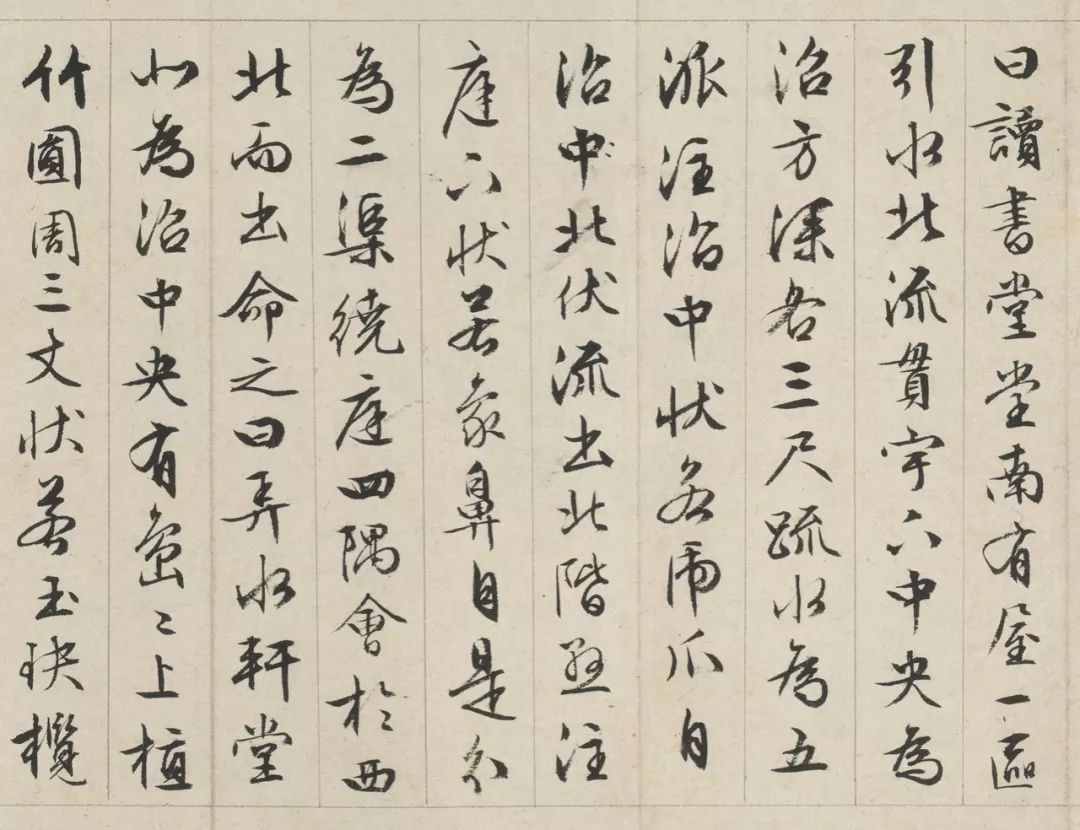 曰讀書堂堂南有屋一區
引水北流貫宇下中央為
沼方深各三尺疏水為五
派注沼中狀若虎爪自
沼中北伏流出北階懸注
庭下狀若象鼻自是分
為二渠繞庭四隅會於西
北而出命之曰弄水軒堂
北為沼中央有島〻上植
竹圓周三丈狀若玉玦攬